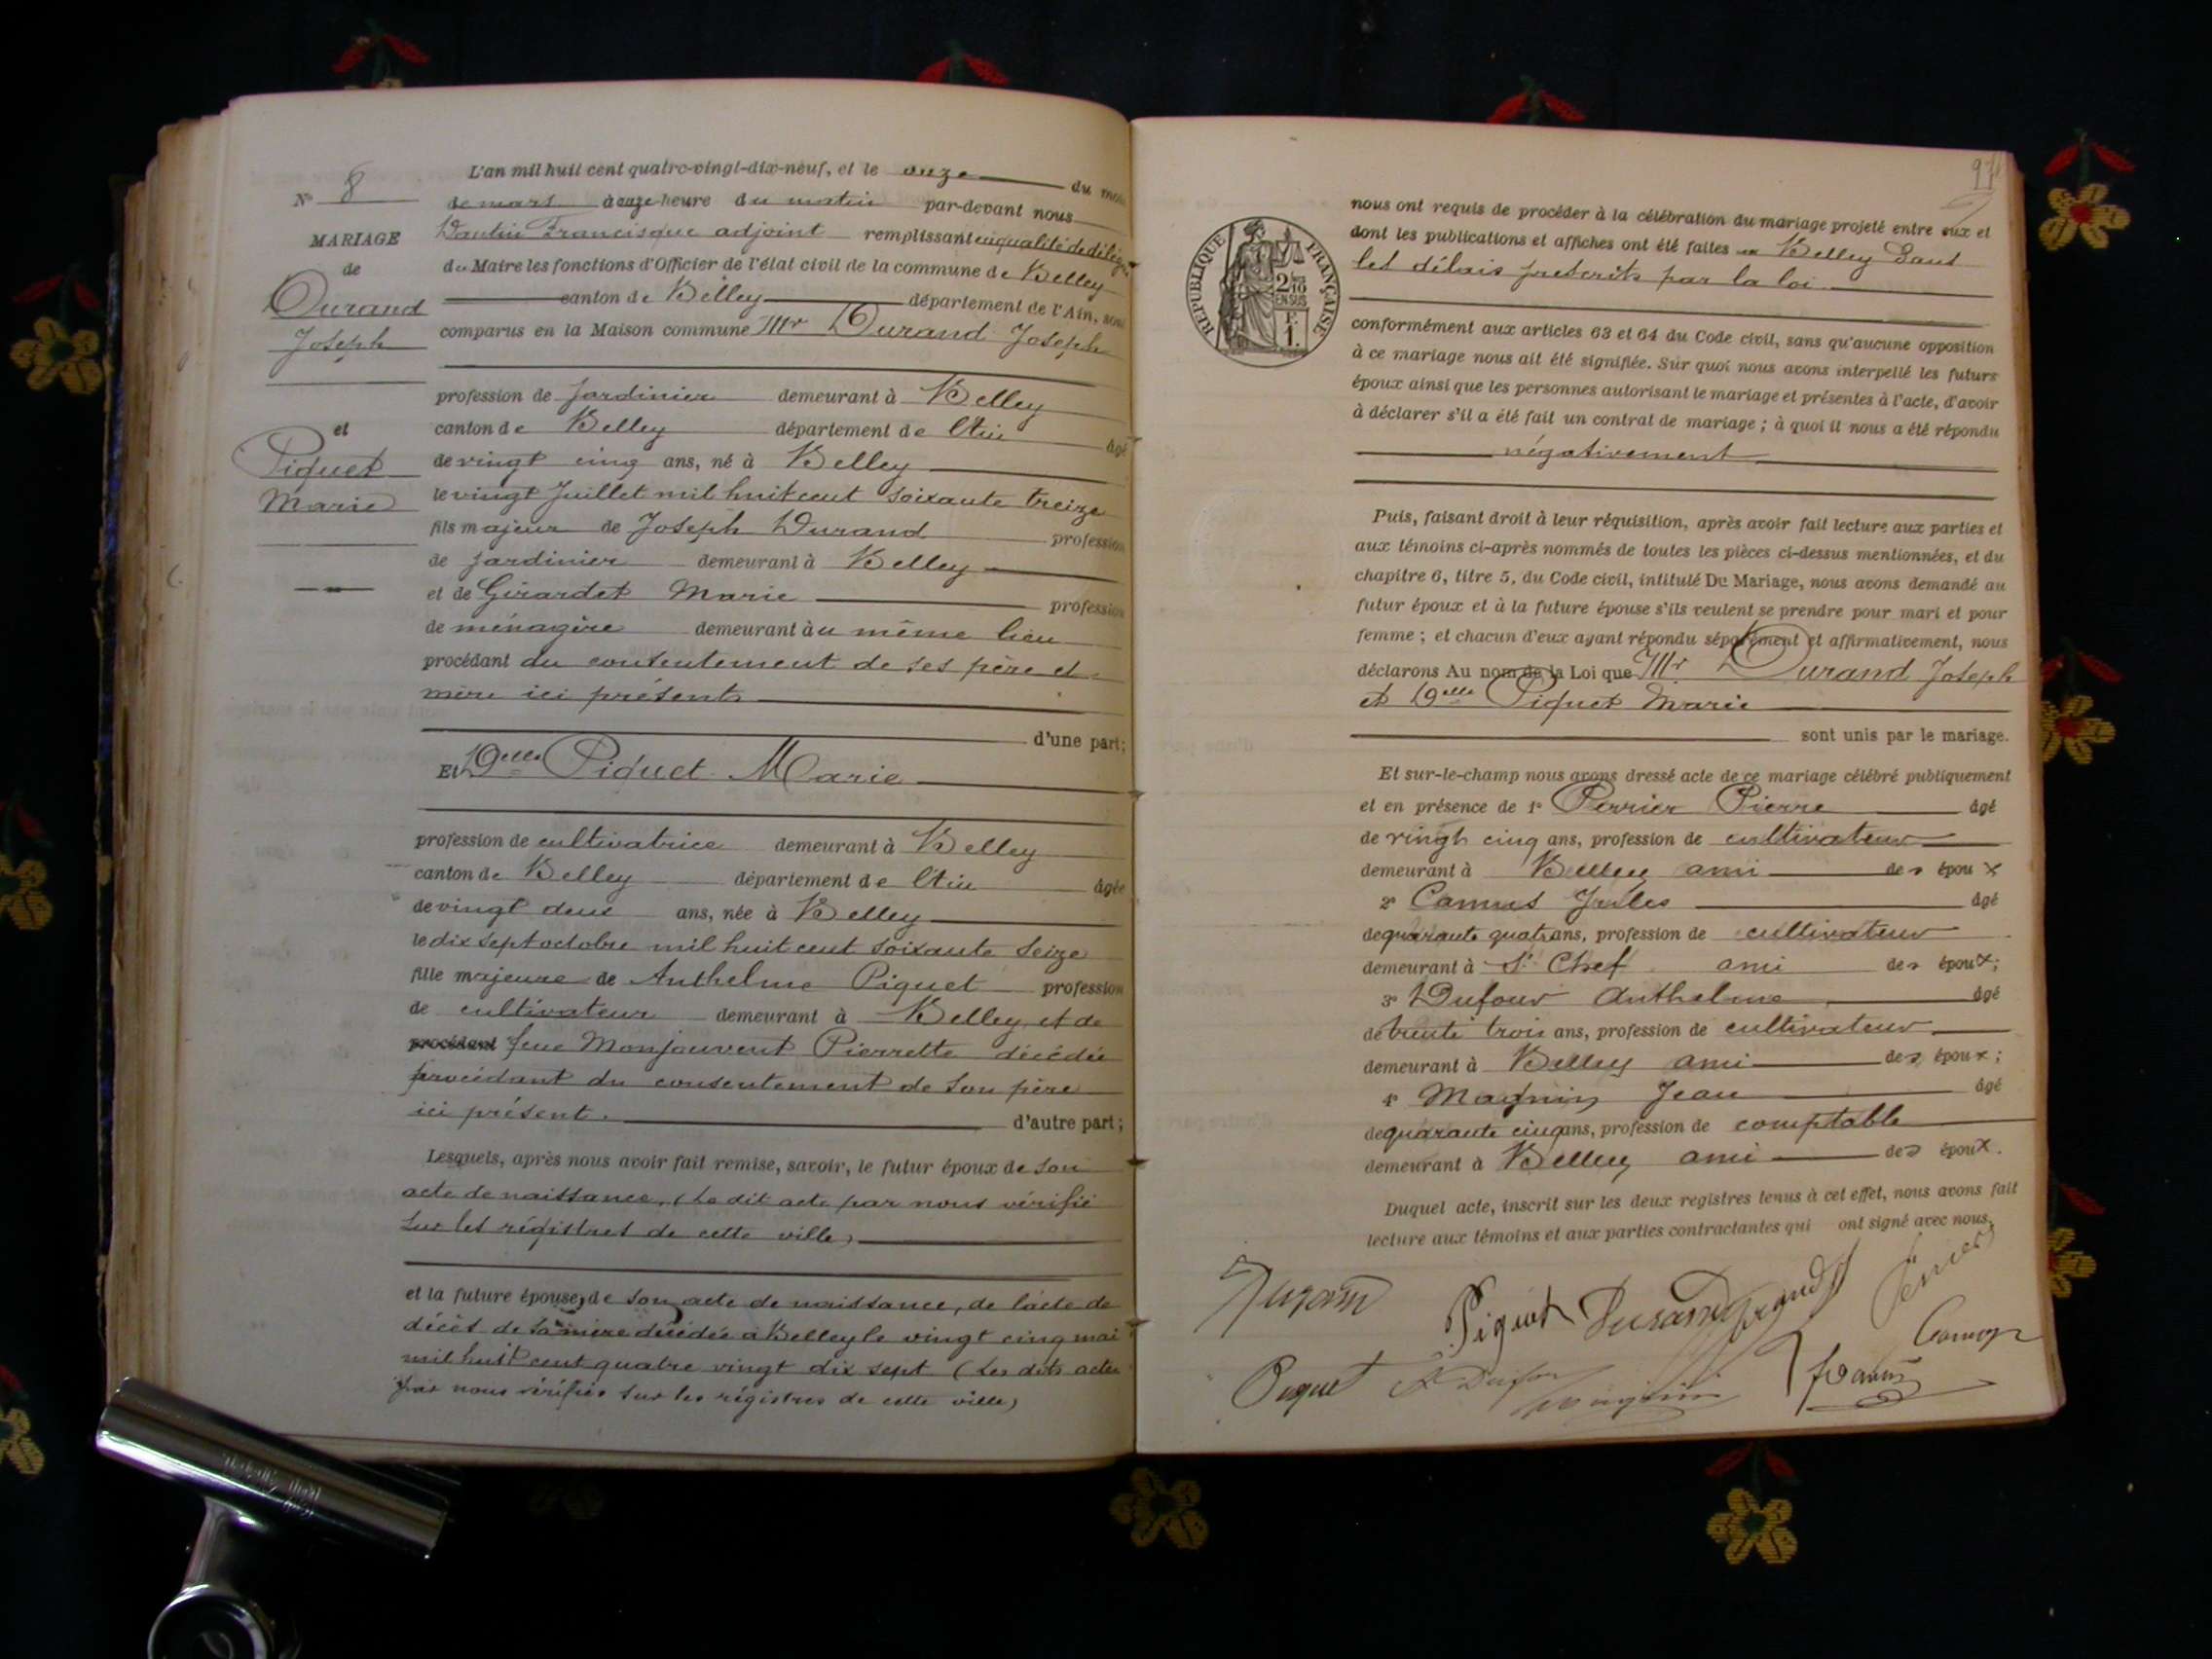 N° 8
MARIAGE
de
Durand
Joseph
et
Piquet
Marie
L'an mil huit cent quatre-vingt-dix-neuf, et le onze du mois
de mars à onze heure du matin par-devant nous
Francisque adjoint remplissant en qualité de délégué
du Maire les fonctions d'Officier de l'état civil de la commune de Belley
canton de Belley département de l'Ain, sont
comparus en la Maison commune Mr Durand Joseph
profession de jardinier demeurant à Belley
canton de Belley département de l'Ain âgé
de vingt cinq ans, né à Belley
le vingt Juillet mil huit cent soixante treize
fils majeur de Joseph Durand profession
de jardinier demeurant à Belley
et de Girardet Marie profession
de ménagère demeurant au même lieu
procédant du consentement de ses père et
mère ici présents
d'une part;
Et Delle Piquet Marie
profession de cultivatrice demeurant à Belley
canton de Belley département de l'Ain âgée
de vingt deux ans, née à Belley
le dix sept octobre mil huit cent soixante seize
fille majeure de Anthelme Piquet profession
de cultivateur demeurant à Belley et de
procédant feue Monjouvent Pierrette décédée
procédant du consentement de son père
ici présent. d'autre part;
Lesquels, après nous avoir fait remise, savoir, le futur époux de son
acte de naissance, (Le dit acte par nous vérifié
sur les régistres de cette ville)
et la future épouse, de son acte de naissance, de l'acte de
décès de sa mère décédée à Belley le vingt cinq mai
mil huit cent quatre vingt dix sept (Les dits actes
par nous vérifiés sur les régistres de cette ville)
97
RÉPUBLIQUE FRANÇAISE
2/10
EN SUS
F.
1.
nous ont requis de procéder à la célébration du mariage projeté entre eux et
dont les publications et affiches ont été faites à Belley dans
les délais prescrits par la loi
conformément aux articles 63 et 64 du Code civil, sans qu'aucune opposition
à ce mariage nous ait été signifiée. Sur quoi nous avons interpellé les futurs
époux ainsi que les personnes autorisant le mariage et présentes à l'acte, d'avoir
à déclarer s'il a été fait un contrat de mariage ; à quoi il nous a été répondu
négativement
Puis, faisant droit à leur réquisition, après avoir fait lecture aux parties et
aux témoins ci-après nommés de toutes les pièces ci-dessus mentionnées, et du
chapitre 6, titre 5, du Code civil, intitulé Du Mariage, nous avons demandé au
futur époux et à la future épouse s'ils veulent se prendre pour mari et pour
femme ; et chacun d'eux ayant répondu séparément et affirmativement, nous
déclarons Au nom de la Loi que Mr Durand Joseph
et Delle Piquet Marie
sont unis par le mariage.
Et sur-le-champ nous avons dressé acte de ce mariage célébré publiquement
et en présence de 1° Perrier Pierre âgé
de vingt cinq ans, profession de cultivateur
demeurant à Belley ami des époux
2° Camus Jules âgé
de quarante quatre ans, profession de cultivateur
demeurant à St Chef ami des époux;
3° Dufour Anthelme âgé
de trente trois ans, profession de cultivateur
demeurant à Belley ami des époux;
4° Magnin Jean âgé
de quarante cinq ans, profession de comptable
demeurant à Belley ami des époux.
Duquel acte, inscrit sur les deux registres tenus à cet effet, nous avons fait
lecture aux témoins et aux parties contractantes qui ont signé avec nous.
Piquet Durand
Piquet